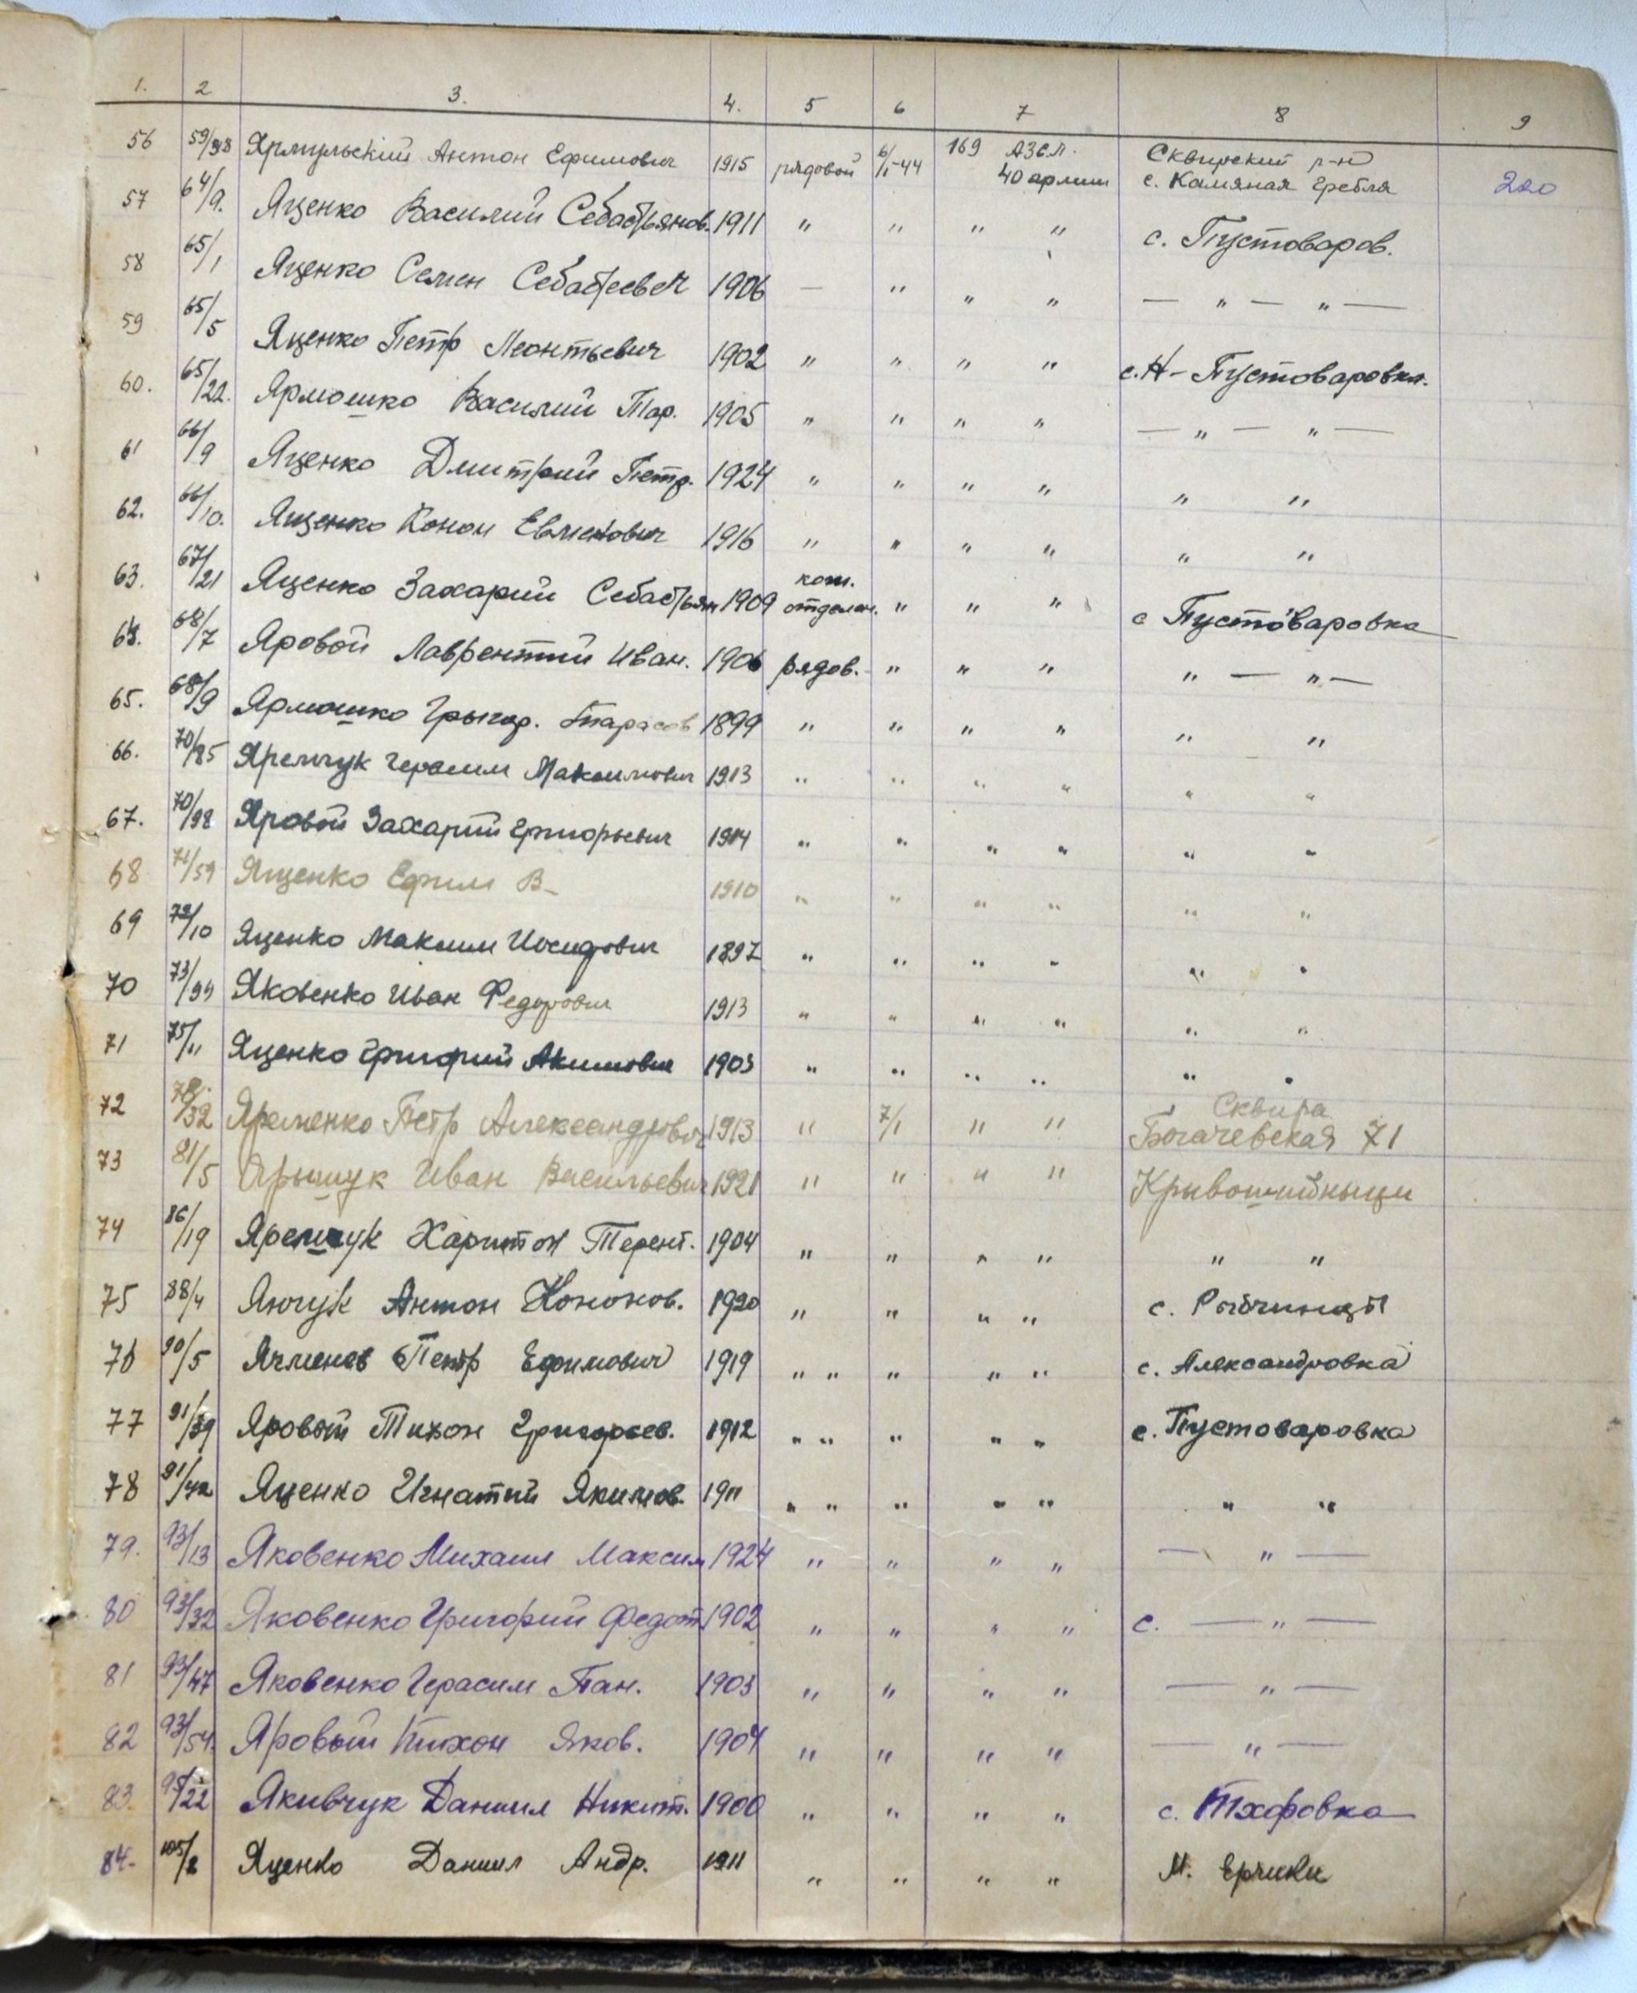 1. 2 3. 4. 5 6 7 8 9
56 59/98 Ярмульский Антон Ефимович 1915 рядовой 6/I-44 169 АЗСП. 40 армии Сквирский р-н с. Камяная Гребля 200
57 64/9. Яценко Василий Себастьянов. 1911 " " " " с. Пустоваров.
58 65/1 Яценко Семен Себастеевич 1906 — " " " — " — " —
59 65/5 Яценко Петр Леонтьевич 1902 " " " " с. Н-Пустоваровка.
60. 65/22. Ярмошко Василий Тар. 1905 " " " " — " — " —
61 66/9 Яценко Дмитрий Петр. 1924 " " " " " "
62. 66/10. Ященко Конон Евменович 1916 " " " " " "
63. 67/21 Яценко Захарий Себастьян 1909 ком. отделен. " " " с Пустоваровка
64. 68/7 Яровой Лаврентий Иван. 1906 рядов. " " " " — " —
65. 68/9 Ярмошко Грыгор. Тарасов 1899 " " " " " "
66. 70/85 Яремчук Герасим Максимович 1913 " " " " " "
67. 70/98 Яровой Захарий Григорьевич 1914 " " " " " "
68 71/59 Ященко Ефим В- 1910 " " " " " "
69 72/10 Яценко Максим Иосипович 1897 " " " " " "
70 73/99 Яковенко Иван Федорович 1913 " " " " " "
71 75/11 Яценко Григорий Акимович 1903 " " " " " "
72 78/32 Яременко Петр Александрович 1913 " 7/I " " Сквира Богачевская 71
73 81/5 Ярышук Иван Васильевич 1921 " " " " Кривошийныци
74 86/19 Яремчук Харитон Терент. 1904 " " " " " "
75 88/4 Янчук Антон Кононов. 1920 " " " " с. Рыбчинцы
76 90/5 Ячменев Петр Ефимович 1919 " " " " " с. Александровка
77 91/39 Яровый Тихон Григорьев. 1912 " " " " " с. Пустоваровка
78 91/42 Яценко Игнатий Якимов. 1911 " " " " " " "
79. 93/13 Яковенко Михаил Максим 1924 " " " " — " —
80 93/32 Яковенко Григорий Федот. 1902 " " " " с. — " —
81 93/47 Яковенко Герасим Пан. 1903 " " " " — " —
82 93/54. Яровый Тихон Яков. 1904 " " " " — " —
83. 95/22 Якивчук Даниил Никит. 1900 " " " " с. Тхоровка
84. 105/2 Яценко Даниил Андр. 1911 " " " " М. Ерчики